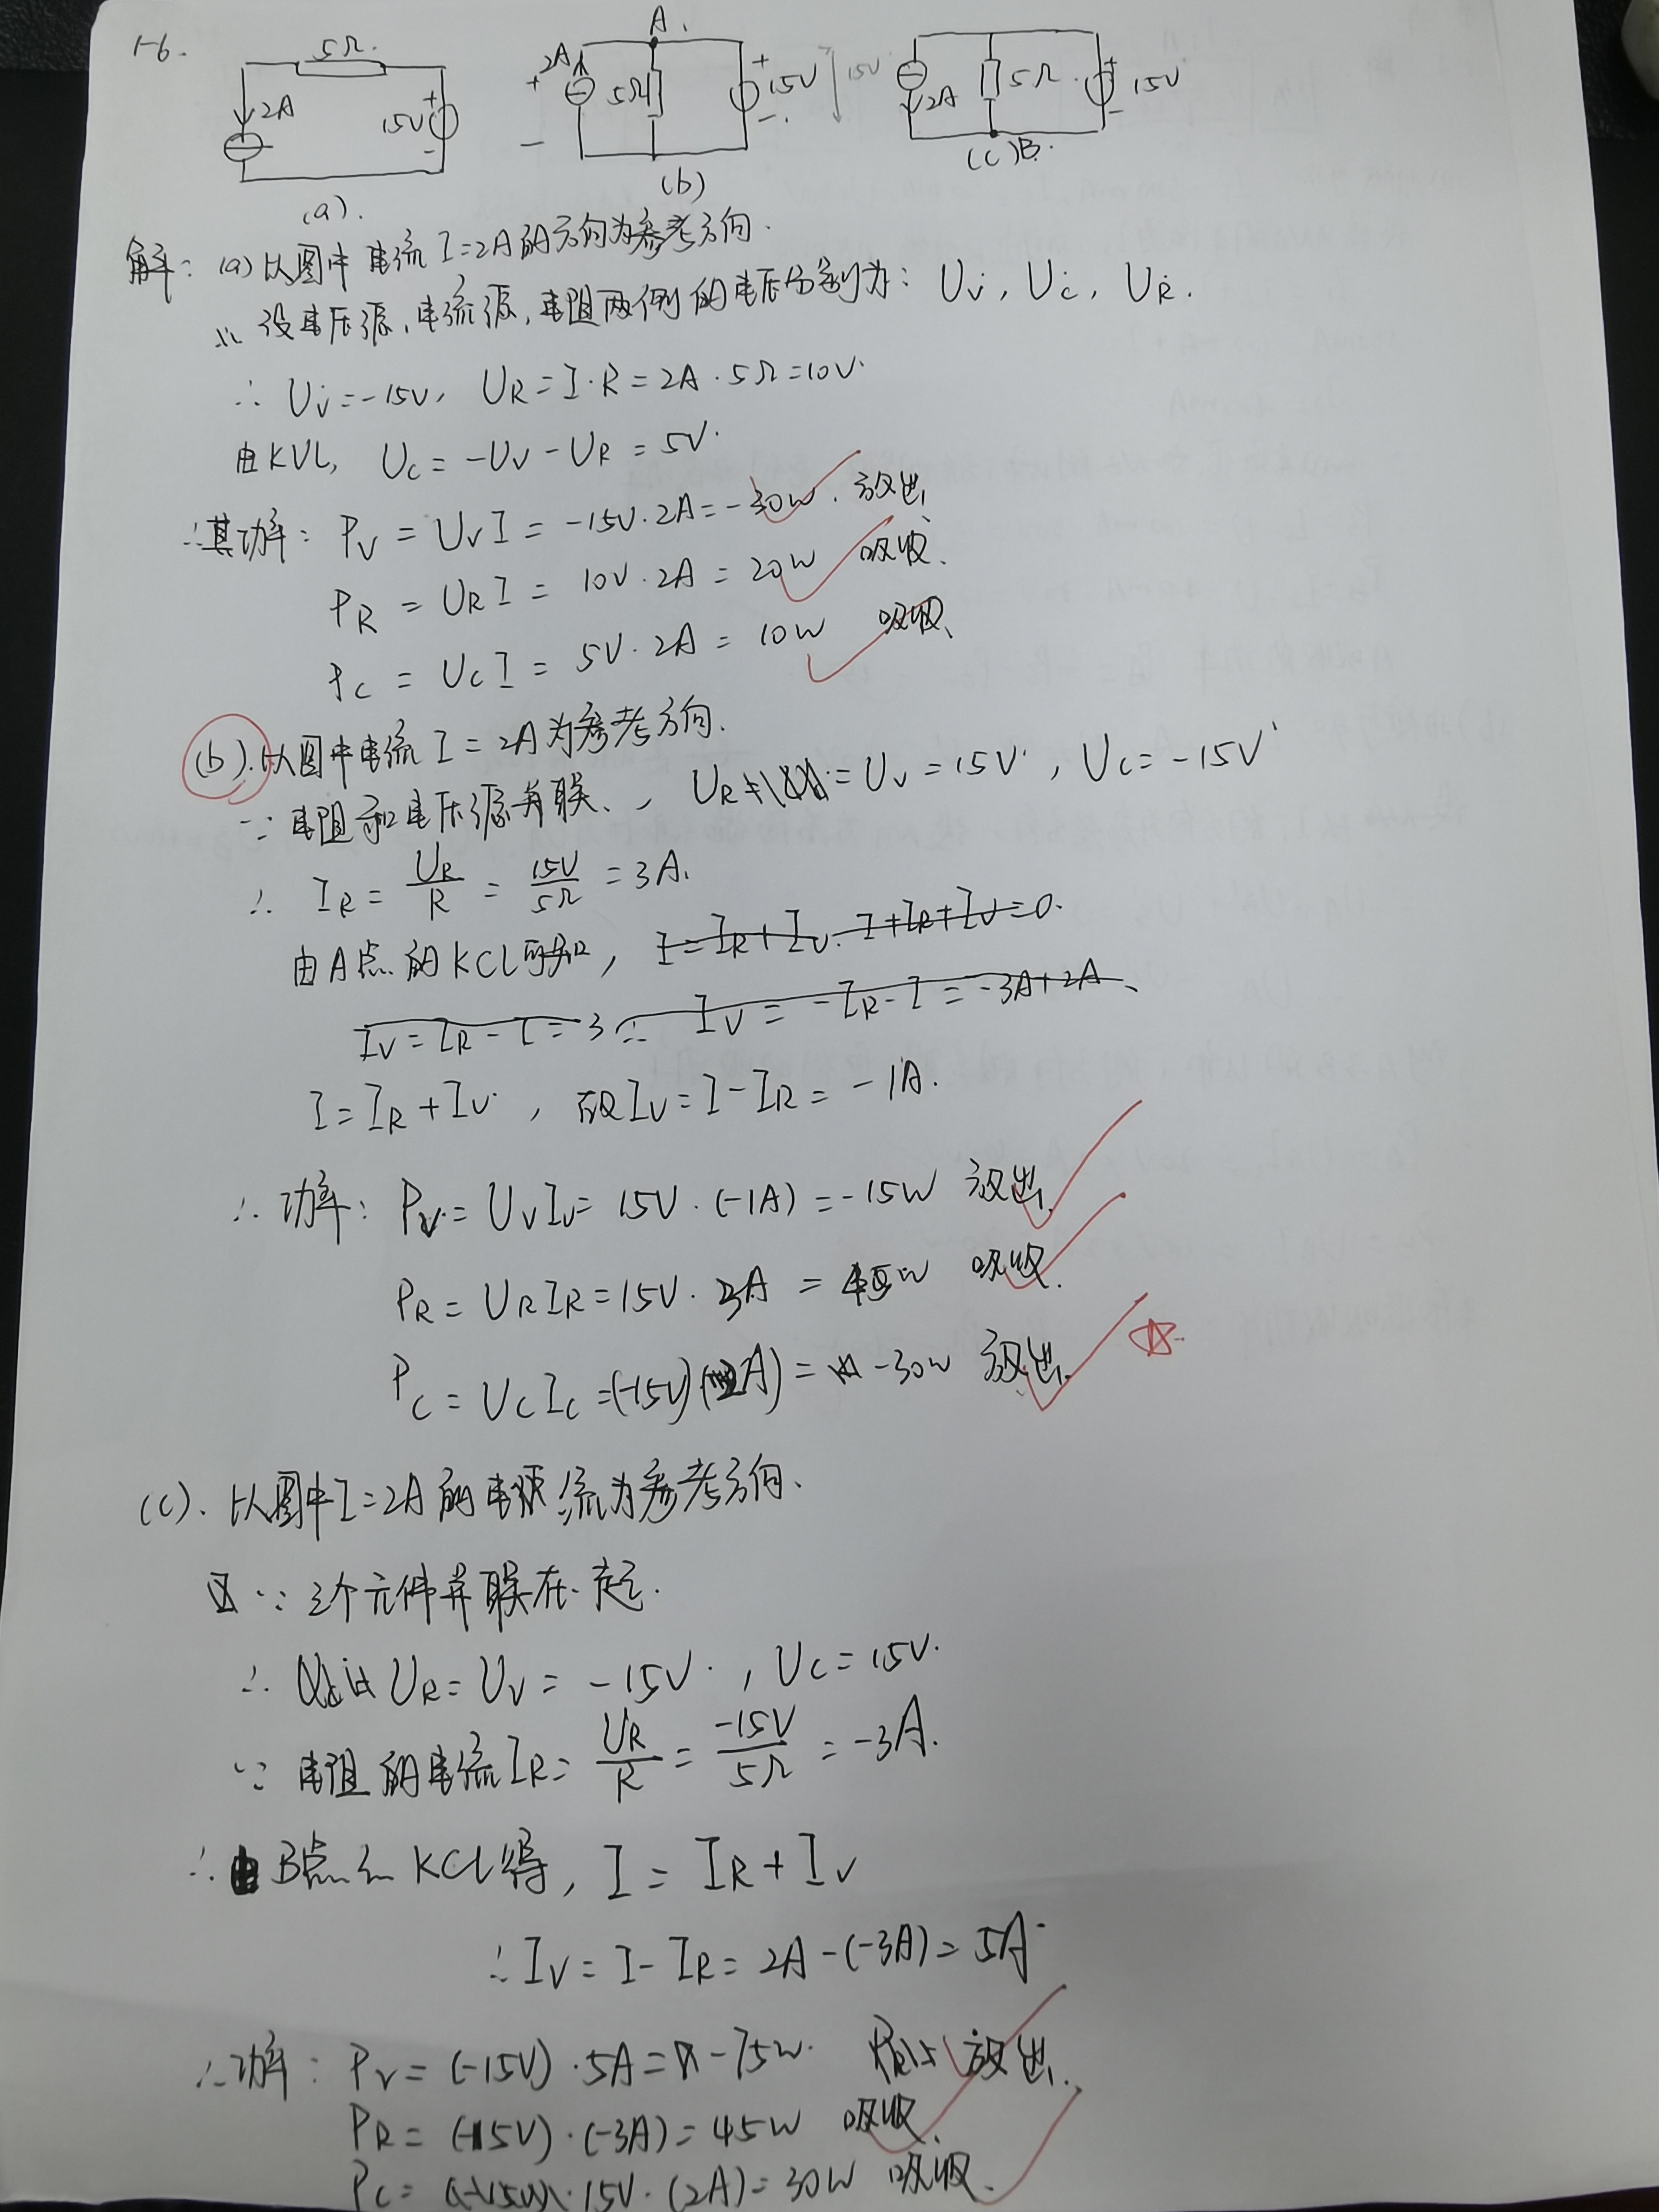 1-6.
5Ω
2A
15V
+
-
(a).
A.
2A
+
-
5Ω
+
15V
-
15V
(b)
2A
5Ω
+
15V
-
(c)B.
解: (a)以图中电流I=2A的方向为参考方向.
∴设电压源,电流源,电阻两侧的电压分别为: Uv, Uc, UR.
∴ Uv=-15V, UR=I·R=2A·5Ω=10V.
由KVL, Uc=-Uv-UR=5V.
∴其功率: Pv=UvI=-15V·2A=-30W. 放出
PR=URI=10V·2A=20W 吸收.
Pc=UcI=5V·2A=10W 吸收.
(b).以图中电流I=2A为参考方向.
∵电阻和电压源并联, UR=Uv=15V, Uc=-15V
∴ IR=UR/R=15V/5Ω=3A.
由A点的KCL可知, I=IR+Iv. I+IR+Iv=0.
Iv=IR-I=3 ∴ Iv=-IR-I=-3A+2A
I=IR+Iv, 故Iv=I-IR=-1A.
∴功率: Pv=UvIv=15V·(-1A)=-15W 放出.
PR=URIR=15V·3A=45W 吸收.
Pc=UcIc=(-15V)(2A)=-30W 放出.
(c). 以图中I=2A的电流为参考方向.
∵三个元件并联在一起.
∴ UR=Uv=-15V, Uc=15V.
∵电阻的电流IR=UR/R=-15V/5Ω=-3A.
∴由B点 KCL得, I=IR+Iv
∴Iv=I-IR=2A-(-3A)=5A
∴功率: Pv=(-15V)·5A=-75W. 放出.
PR=(-15V)·(-3A)=45W 吸收.
Pc=15V·(2A)=30W 吸收.